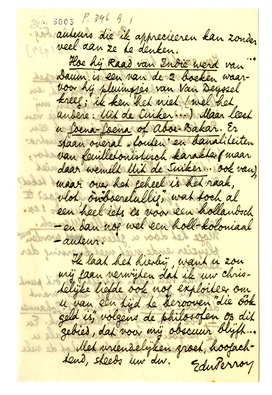 5003 P. 346 A 1
auteurs die ik apprecieeren kan zonder
veel aan ze te denken.
Hoe hij Raad van Indië werd van
Daum, is een van de 2 boeken waar-
voor hij pluimpjes van Van Deyssel
kreeg; ik ken het niet (wel het
andere: Uit de Suiker...) Maar leest
u Goena-Goena of Aboe-Bakar. Er
staan overal fouten en banaliteiten
van feuilletonistisch karakter (maar
daar wemelt Uit de Suiker... ook van),
maar over het geheel is het raak,
vlot, onboersch, wat toch al
een heel iets is voor een hollandsch
- en dan nog wel een holl-koloniaal
- auteur.
Ik laat het hierbij, want u zou
mij gaan verwijten dat ik uw chris-
telijke liefde ook nog exploiteer om
u van een tijd te berooven "die óók
geld is", volgens de philosofen op dit
gebied, dat voor mij obscuur blijft...
Met vriendelijken groet, hoogach-
tend, steeds uw dw.
EduPerron